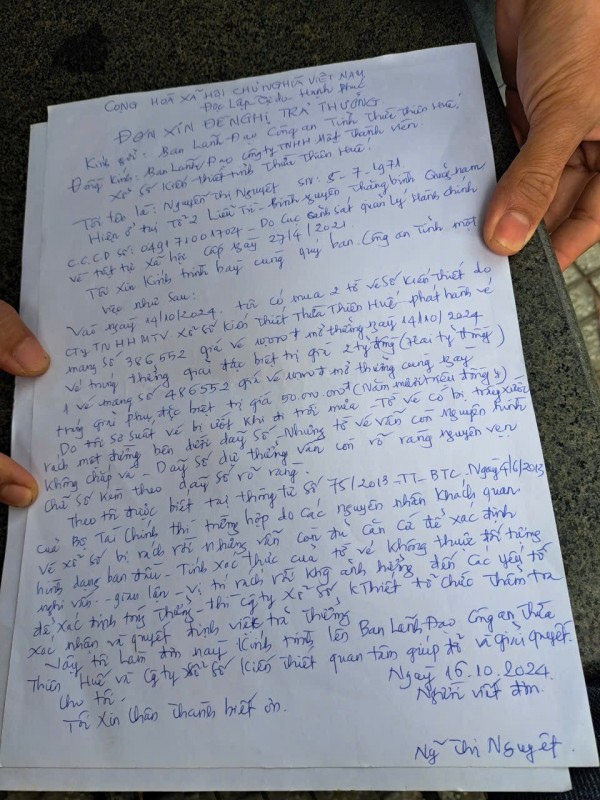 CỘNG HOÀ XÃ HỘI CHỦ NGHĨA VIỆT NAM
Độc Lập Tự do Hạnh Phúc
ĐƠN XIN ĐỀ NGHỊ TRẢ THƯỞNG
Kính gửi: Ban Lãnh Đạo Công an Tỉnh Thừa Thiên Huế.
Đồng Kính: Ban Lãnh Đạo Công ty TNHH Một Thành viên
Xổ Số Kiến thiết tỉnh Thừa Thiên Huế.
Tôi tên là: Nguyễn Thị Nguyệt SN: 8-7-1971
Hiện ở tại Tổ 2 Liễu Trì - Bình Nguyên Thăng Bình Quảng Nam
C.C.C.D số: 049171001702 - Do Cục Cảnh Sát quản lý Hành chính
về trật tự xã hội cấp ngày 27/4/2021.
Tôi Xin Kính trình bày cùng quý ban. Công an Tỉnh một
việc như Sau:
Vào ngày 14/10/2024. tôi có mua 2 tờ vé Số Kiến thiết do
CTy TNHHMTV Xổ số Kiến Thiết Thừa Thiên Huế phát hành vé
mang Số 386552 giá vé 10.000đ mở thưởng ngày 14/10/2024
vé trúng thưởng giải đặc biệt trị giá 2 tỷ đồng (Hai tỷ đồng)
1 vé mang số 486552 giá vé 10.000đ mở thưởng cùng ngày
trúng giải phụ đặc biệt trị giá 50.000.000đ (Năm mươi triệu đồng)
Do tôi sơ suất vé bị ướt khi đi trời mưa - Tờ vé có bị trầy xước
rách một đường bên dưới dãy Số - Nhưng tờ vé vẫn còn nguyên hình
không chắp vá - Dãy Số dự thưởng vẫn còn rõ ràng nguyên vẹn
Chữ Số kèm theo dãy số rõ ràng.
Theo tôi được biết tại thông tư số 75/2013-TT-BTC. Ngày 4/6/2013
của Bộ Tài Chính thì trường hợp do các nguyên nhân khách quan
vé xổ số bị rách rời nhưng vẫn còn đủ căn cứ để xác định
hình dạng ban đầu - Tính xác thực của tờ vé không thuộc đối tượng
nghi vấn - gian lận - vị trí rách rời không ảnh hưởng đến các yếu tố
để xác định trúng thưởng - thì Công ty Xổ số Kthiết tổ chức Thẩm tra
xác nhận và quyết định việc trả thưởng
Vậy tôi làm đơn này Kính trình lên Ban Lãnh Đạo Công an Thừa
Thiên Huế và Công ty Xổ số Kiến Thiết quan tâm giúp đỡ và giải quyết
cho tôi.
Tôi Xin Chân thành biết ơn.
Ngày 16.10.2024
Người viết đơn.
Ng Thị Nguyệt.